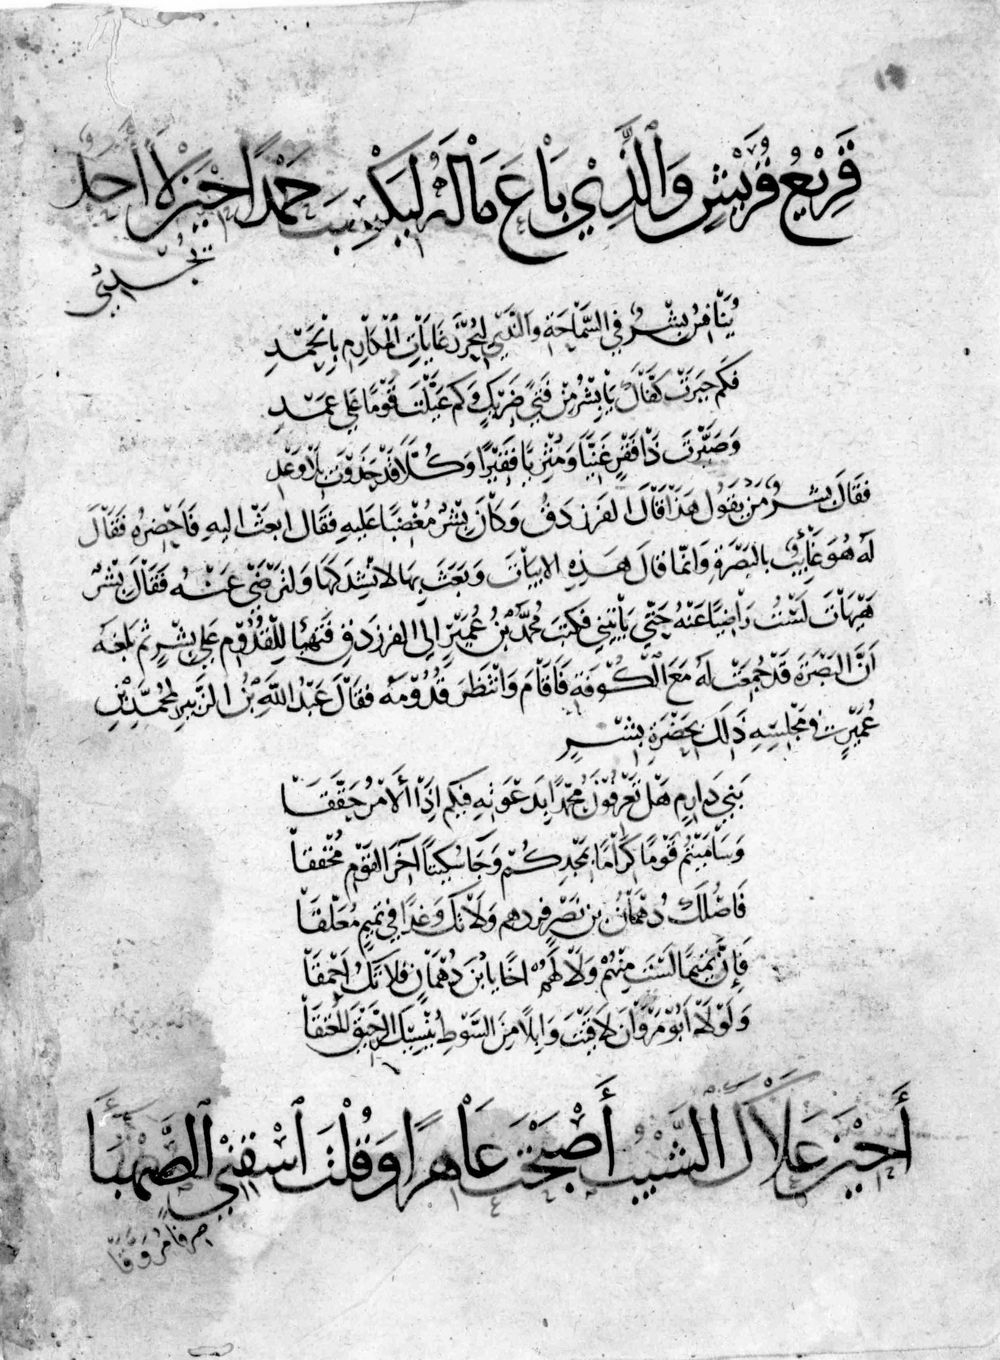 قَرِيْعُ قُرَيْشٍ وَالَّذِيْ بَاعَ مَالَهُ لِيَكْسِبَ حَمْدًا حِيْنَ لَا أَحَدٌ
يُجْدِي
يُنَافِرُ بِشْرٌ فِي السَّمَاحَةِ وَالنَّدَى لِيُحْرِزَ غَايَاتِ الْمَكَارِمِ بِالْحَمْدِ
فَكَمْ جَبَرَتْ كَفَّاكَ يَا بِشْرُ مِنْ فَتًى ضَرِيكٍ وَكَمْ عَيَّلْتَ قَوْمًا عَلَى عَمْدِ
وَصَيَّرْتَ ذَا فَقْرٍ غَنِيًّا وَمُثْرِيًا فَقِيْرًا وَكُلًّا قَدْ حَذَوْتَ بِلَا وَعْدِ
فَقَالَ بِشْرٌ مَنْ يَقُولُ هَذَا قَالَ الفَرَزدَقُ وَكَانَ بِشْرٌ مُغْضَبًا عَلَيهِ فَقَالَ ابعَثْ اليهِ فَاَحْضِرْهُ فَقَالَ
لَهُ هُوَ غَائِبٌ بالبَصْرَةِ وَانّمَا قَالَ هَذِهِ الابيَاتَ وَبَعَثَ بِهَا لاُنْشِدَكَهَا وَلِتَرْضَى عَنْهُ فَقَالَ بِشْرٌ
هَيْهَاتَ لَسْتُ رَاضِيًا عَنْهُ حَتّى يَأتِيَنِي فَكَتَبَ مُحَمَّدُ بْنُ عُمَيْرٍ اِلى الفرزدقِ فَتَهَيَّأ لِلْقُدُوْمِ عَلى بِشْرٍ ثم بَلَغَهُ
اَنَّ البَصْرَةَ قَدْ جُمِعَتْ لَهُ مَعَ الْكُوْفَةِ فَاَقَامَ وَانْتَظَرَ قُدُوْمَهُ فَقَالَ عَبْدُ اللّهِ بْنُ الزَّبِيرِ لمُحَمَّدِ بْنِ
عُمَيْرٍ فى مَجْلِسِهِ ذَلِكَ بِحَضْرَةِ بِشْرٍ
بَنِي دَارِمٍ هَلْ تَعْرِفُوْنَ مُحَمَّدًا بِدَعْوَتِهِ فِيكم اِذَا الأَمْرُ حُقِّقَا
وَسَامَيْتُمُ قَوْمًا كِرَامًا بِمَجْدِكُمْ وَجَاءَ سُكَيْتًا آخِرَ القَوْمِ مُخْفِقَا
فَاصْلُكَ دُهْمَانُ بن نَصْرٍ فردهم وَلَا تَكُ وَغْدًا فِي تَمِيمٍ مُعَلَّقَا
فَإِنَّ تَمِيمًا لَسْتَ مِنْهُمْ وَلَا لَهُمْ اخًا يَا ابْنَ دُهْمَانٍ فَلَا تَكُ اَحْمَقَا
وَلَوْلَا أَبُوْ مَرْوَانَ لَاقَيْتَ وَابِلًا مِنَ السَّوْطِ يُنْسِيْكَ الرَّحِيْقَ الْمُعَتَّقَا
أَحِيْنَ عَلَاكَ الشَّيْبُ أَصْبَحْتَ عَاهِرًا وَقُلْتَ اسْقِنِيْ الصَّهْبَاءَ
صِرْفًا مُرَوَّقَا